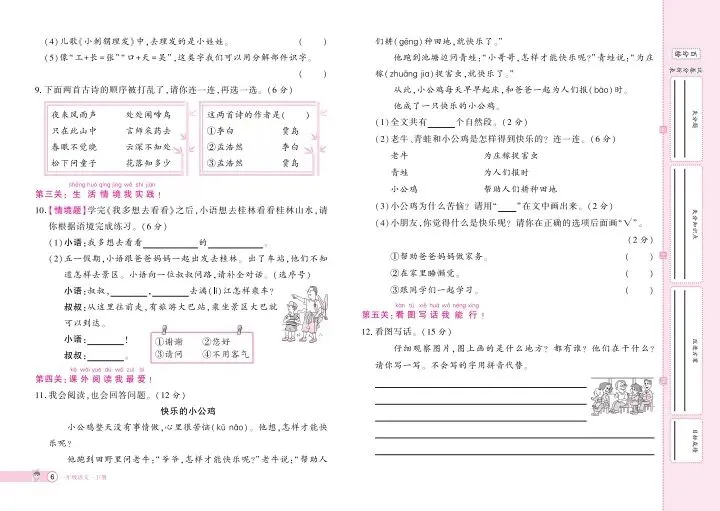 (4)儿歌《小刺猬理发》中,去理发的是小娃娃。 ( )
(5)像“工+长=张”“口+天=吴”,这类字我们可以用分解部件识字。
( )
9.下面两首古诗的顺序被打乱了,请你连一连,再选一选。(6分)
夜来风雨声 处处闻啼鸟
只在此山中 言师采药去
春眠不觉晓 云深不知处
松下问童子 花落知多少
这两首诗的作者是( )
①李白 贾岛
②孟浩然 李白
③孟浩然 贾岛
shēng huó qíng jìng wǒ shí jiàn
第三关:生活情境我实践!
10.【情境题】学完《我多想去看看》之后,小语想去桂林看看桂林山水,请
你根据语境完成练习。(6分)
(1)小语:我多想去看看 的 。
(2)五一假期,小语跟爸爸妈妈一起出发去桂林。出了车站,他们不知
道怎样去景区。小语向一位叔叔问路,请补全对话。(选序号)
小语:叔叔, , 去漓(lí)江怎样乘车?
叔叔:从这里往前走,有旅游大巴站,乘坐景区大巴就
可以到达。
小语: !
叔叔: 。
①谢谢 ②您好
③请问 ④不用客气
kè wài yuè dú wǒ zuì ài
第四关:课外阅读我最爱!
11.我会阅读,也会回答问题。(12分)
快乐的小公鸡
小公鸡整天没有事情做,心里很苦恼(kǔ nǎo)。他想,怎样才能快
乐呢?
他跑到田野里问老牛:“爷爷,怎样才能快乐呢?”老牛说:“帮助人
6 一年级语文 下册
们耕(gēng)种田地,就快乐了。”
他跑到池塘边问青蛙:“小哥哥,怎样才能快乐呢?”青蛙说:“为庄
稼(zhuāng jia)捉害虫,就快乐了。”
从此,小公鸡每天早早起床,和爸爸一起为人们报(bào)时。
他成了一只快乐的小公鸡。
(1)全文共有 个自然段。(2分)
(2)老牛、青蛙和小公鸡是怎样得到快乐的?连一连。(6分)
老牛 为庄稼捉害虫
青蛙 为人们报时
小公鸡 帮助人们耕种田地
(3)小公鸡为什么苦恼?请用“ ”在文中画出来。(2分)
(4)小朋友,你觉得什么是快乐呢?请你在正确的选项后面画“√”。
(2分)
①帮爸爸妈妈做家务。 ( )
②在家里睡懒觉。 ( )
③跟同学们一起学习。 ( )
kàn tú xiě huà wǒ néng xíng
第五关:看图写话我能行!
12.看图写话。(15分)
仔细观察图片,图上画的是什么地方?都有谁?他们在干什么?
请你写一写。不会写的字用拼音代替。
失分题
失分知识点
改进方案
目标成绩